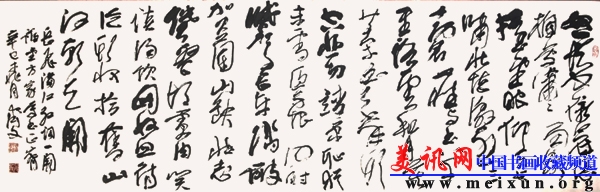 怒发冲冠凭栏处
潇潇雨歇
抬望眼仰天长
啸壮怀激烈三
十功名尘与土八
千里路云和月
莫等闲白了少年头
空悲切靖康耻犹
未雪臣子恨何时
灭驾长车踏破
贺兰山缺壮志
饥餐胡虏肉笑
谈渴饮匈奴血待
从头收拾旧山
河朝天阙
岳飞满江红词一阕
方家
辛巳秋月
美讯网 中国书画收藏频道
www.meixun.org